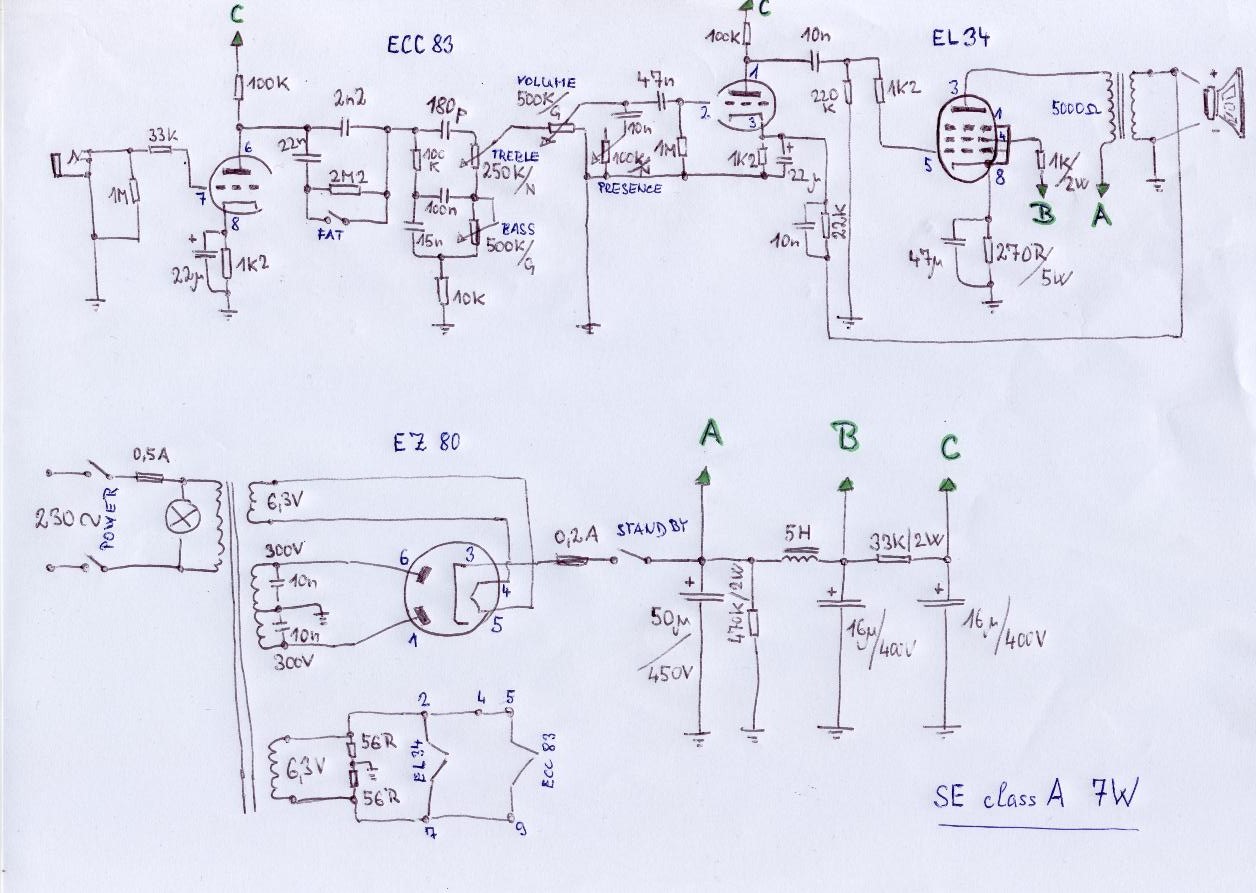 C
ECC 83
100K
6
33K
1M
7
8
22µ
1K2
2n2
22n
2M2
FAT
180p
100K
TREBLE
250K/N
100n
15n
BASS
500K/G
10K
VOLUME
500K/G
10n
100K/N
PRESENCE
47n
1M
C
100K
1
2
3
1K2
22µ
10n
22K
10n
220K
1K2
EL34
3
1
4
5
8
47µ
270R/5W
1K/2W
B
5000Ω
A
+
-
EZ 80
0,5A
230~
POWER
6,3V
300V
10n
10n
300V
6
3
4
5
1
0,2A
STANDBY
A
50µ/450V
470K/2W
5H
B
16µ/400V
33K/2W
C
16µ/400V
+
+
+
6,3V
56R
56R
2
4
5
EL34
ECC 83
7
9
SE class A 7W